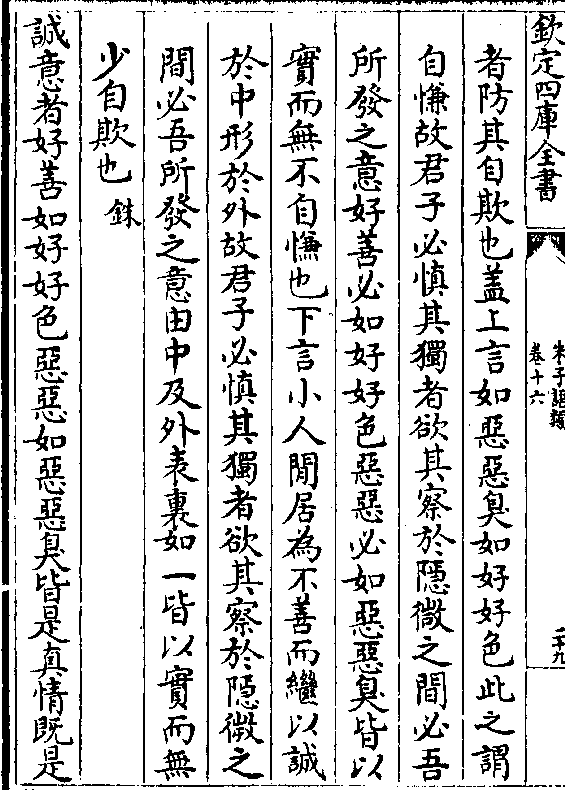 欽定四庫全書
朱子語類
卷十六
二十九
者防其自欺也蓋上言如惡惡臭如好好色此之謂
自慊故君子必慎其獨者欲其察於隱微之間必吾
所發之意好善必如好好色惡惡必如惡惡臭皆以
實而無不自慊也下言小人閒居為不善而繼以誠
於中形於外故君子必慎其獨者欲其察於隱微之
間必吾所發之意由中及外表裏如一皆以實而無
少自欺也 銖
誠意者好善如好好色惡惡如惡惡臭皆是真情既是